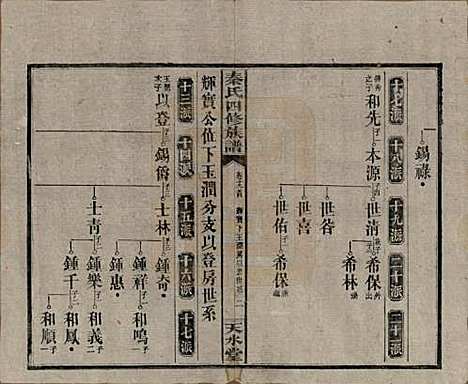 錫祿
十七派
十八派
十九派
二十派
二十一派
和先
本源
世清
希保
希林
世谷
世喜
世佑
希保
秦氏四修族譜
天水堂
輝實公位下玉潤分支以登房世系
十三派
十四派
十五派
十六派
十七派
玉潤
之子
以登
錫爵
士林
鍾奇
鍾祥
和鳴
士青
鍾惠
鍾樂
和義
和鳳
鍾千
和順